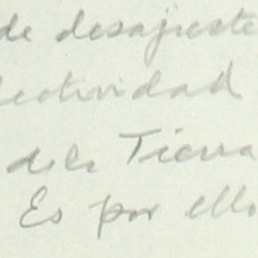 de desajuste
lectividad
de la Tierra
Es por ello